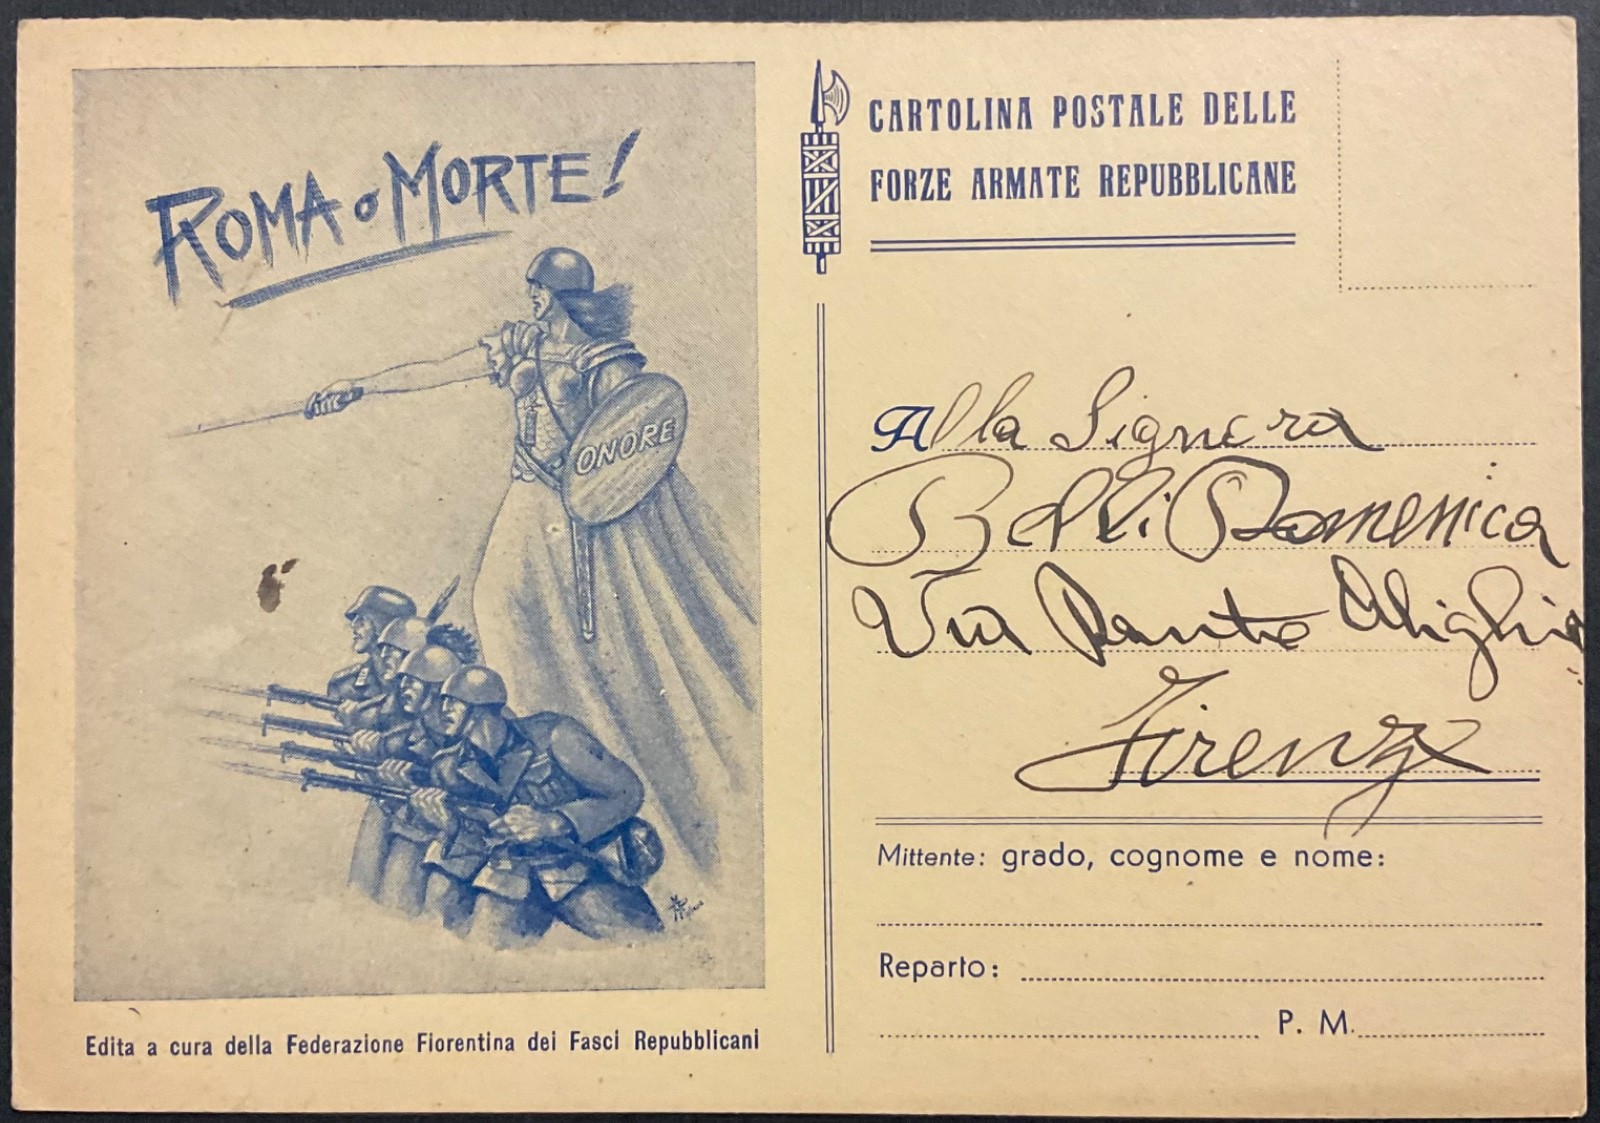 ROMA o MORTE!
ONORE
Edita a cura della Federazione Fiorentina dei Fasci Repubblicani
CARTOLINA POSTALE DELLE
FORZE ARMATE REPUBBLICANE
Alla Signora
Belli Domenica
Via Dante Alighieri
Firenze
Mittente: grado, cognome e nome:
Reparto:
P. M.